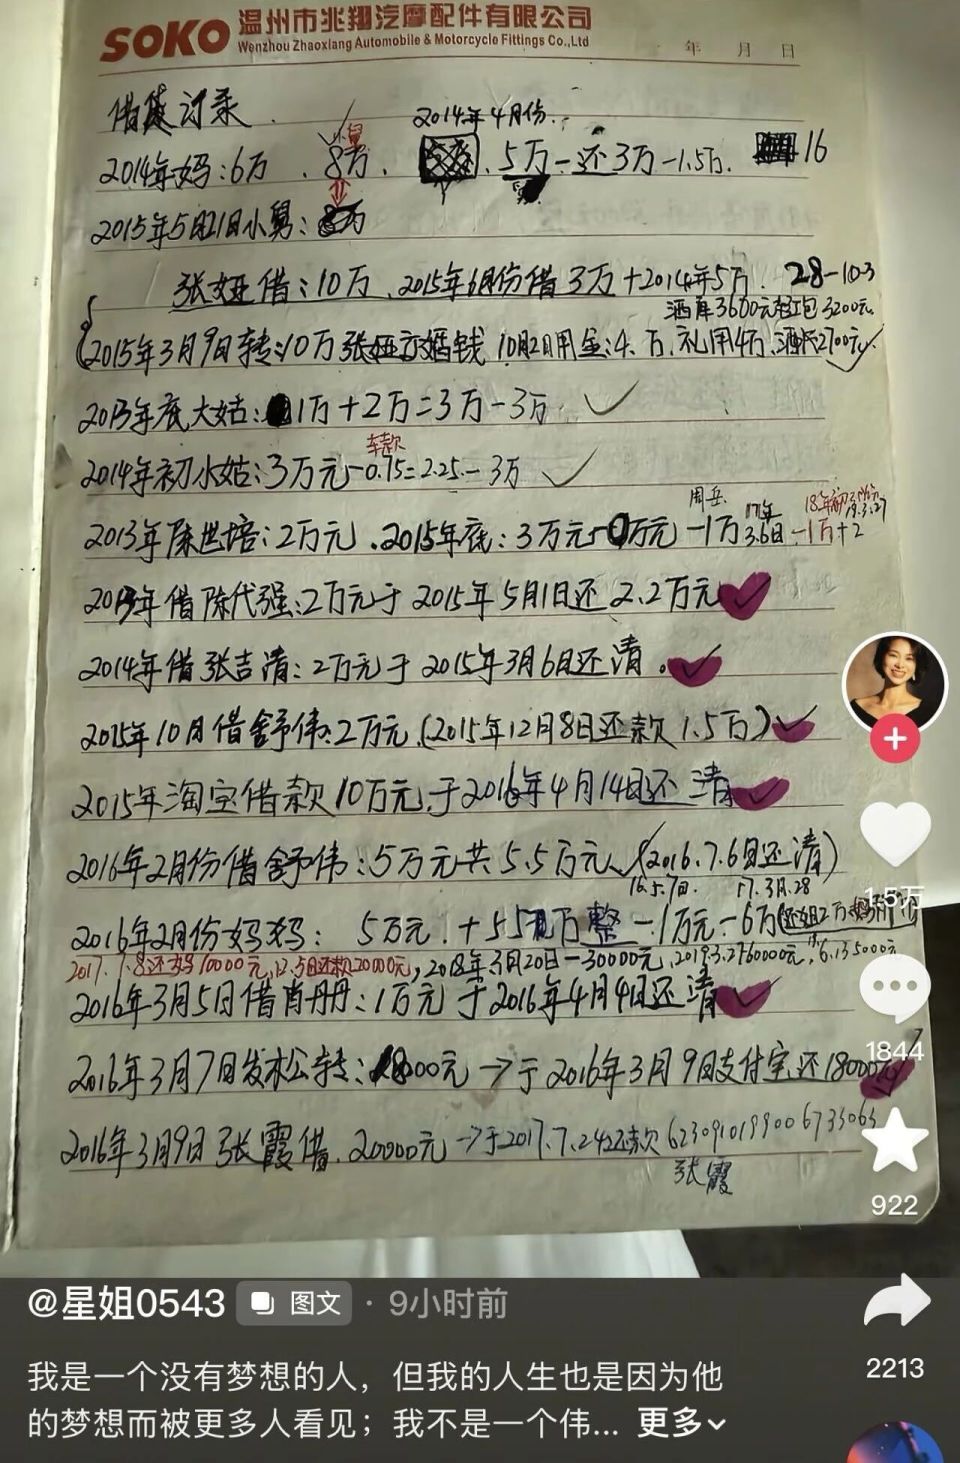 SOKO 温州市兆翔汽摩配件有限公司
Wenzhou Zhaoxiang Automobile & Motorcycle Fittings Co.,Ltd
年 月 日
借贷记录
2014年4月份
小舅
2014年妈:6万 、8万、 5万-还3万-1.5万. 16
2015年5月21日小舅:8万
张娅借:10万、2015年6月份借3万+2014年5万. 28-10.3
3600元 红包3200元
2015年3月9日转:10万张娅 婚钱 10月2日用金:4.万.礼用4万. 2700元
2013年底大姑: 1万+2万=3万-3万
车款
2014年初小姑:3万元-0.75=2.25.-3万
周岳 17年 18年初
2013年陈世培:2万元.2015年底:3万元 万元-1万 3.6日-1万+2
2013年借陈代强:2万元于2015年5月1日还2.2万元
2014年借张吉清:2万元于2015年3月6日还清.
2015年10月借舒伟:2万元(2015年12月8日还款1.5万)
2015年淘宝借款10万元于2016年4月14日还清
2016年2月份借舒伟:5万元共5.5万元(2016.7.6日还清)
16.5.7日. 17.3月.28
2016年2月份妈妈: 5万元.+5.5 万整-1万元-6万(还姐2万
2017.7.8还妈10000元,12.5日还款20000元,2018年3月20日-30000元,2019.3.27 60000元, 6.13 5000元
2016年3月5日借肖丹丹:1万元于2016年4月4日还清
2016年3月7日发松转:18000元→于2016年3月9日支付宝还18000元
2016年3月9日张霞借.20000元→于2017.7.24还款
张霞
1.5万
1844
922
2213
@星姐0543 图文 · 9小时前
我是一个没有梦想的人，但我的人生也是因为他
的梦想而被更多人看见；我不是一个伟... 更多